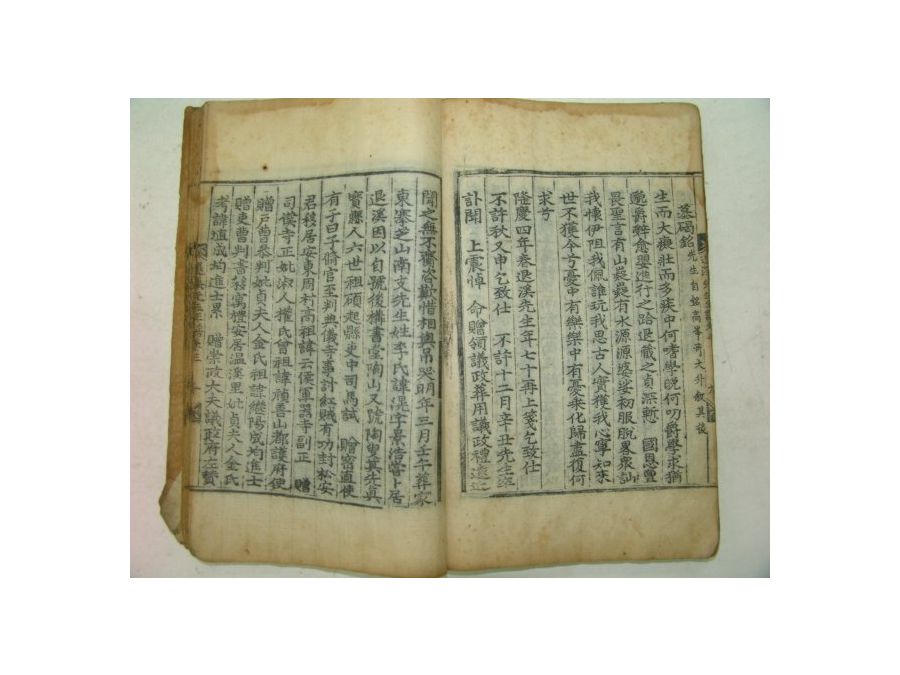 墓碣銘 先生自銘高峯奇大升叙其後
生而大癡壯而多疾中何嗜學晚何叨爵學求猶
邈爵辭愈嬰進行之跲退藏之貞深慙 國恩亶
畏聖言有山嶷嶷有水源源婆娑初服脫畧衆訕
我懷伊阻我佩誰玩我思古人實獲我心寧知來
世不獲今兮憂中有樂樂中有憂乘化歸盡復何
求兮
隆慶四年春退溪先生年七十再上箋乞致仕
不許秋又申乞致仕 不許十二月辛丑先生卒
訃聞 上震悼 命贈領議政葬用議政禮遠近
聞之無不齎咨歎惜相與吊哭明年三月壬午葬家
東搴芝山南支先生姓李氏諱滉字景浩嘗卜居
退溪因以自號後構書堂陶山又號陶叟其先真
寶縣人六世祖碩起縣吏中司馬試 贈密直使
有子曰子脩官至判典儀寺事討紅賊有功封松安
君移居安東周村高祖諱云侯軍器寺副正 贈
司僕寺正妣淑人權氏曾祖諱禎善山都護府使
贈戶曹參判妣貞夫人金氏祖諱繼陽成均進士
贈吏曹判書始寓禮安居溫溪里妣貞夫人金氏
考諱埴成均進士累 贈崇政大夫議政府左贊